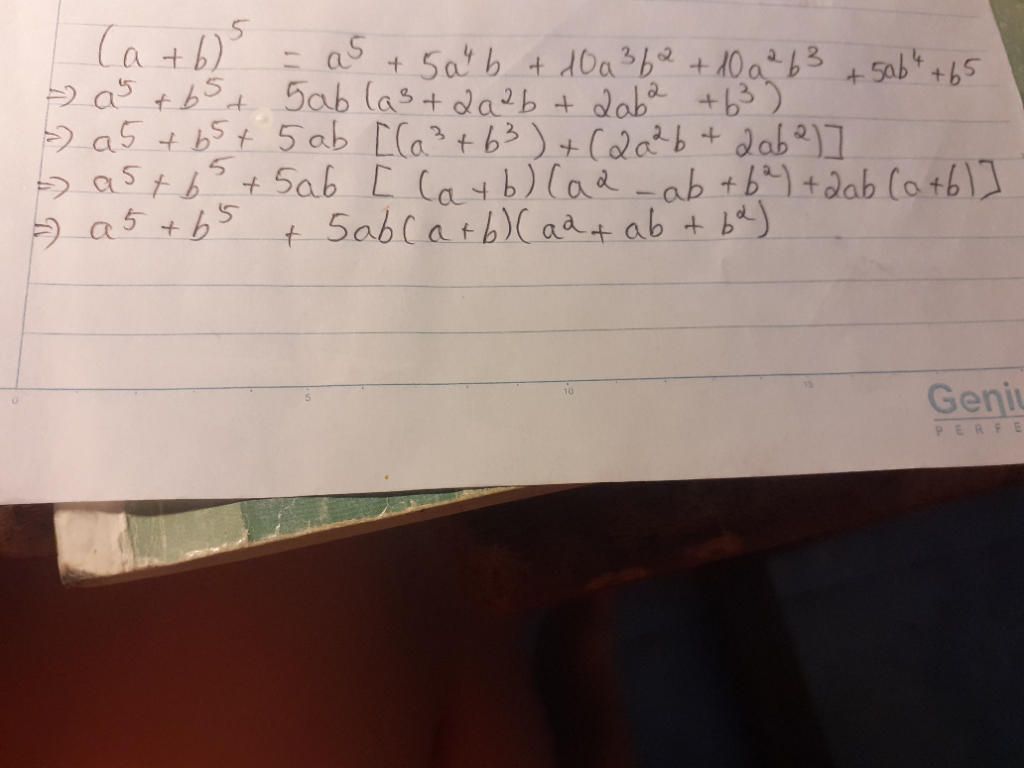 (a + b)⁵ = a⁵ + 5a⁴b + 10a³b² + 10a²b³ + 5ab⁴ + b⁵
⇒ a⁵ + b⁵ + 5ab (a³ + 2a²b + 2ab² + b³)
⇒ a⁵ + b⁵ + 5ab [(a³ + b³) + (2a²b + 2ab²)]
⇒ a⁵ + b⁵ + 5ab [ (a + b) (a² - ab + b²) + 2ab (a + b) ]
⇒ a⁵ + b⁵ + 5ab (a + b) (a² + ab + b²)
0 5 10 15
Geniu
PERFE